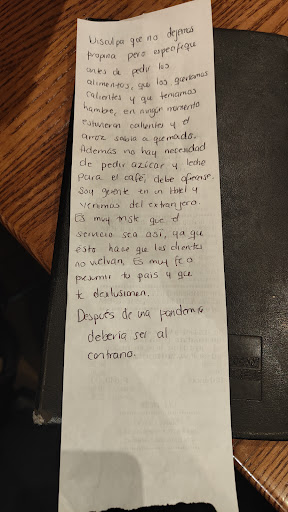 Disculpa que no dejemos
propina pero especifique
antes de pedir los
alimentos, que los queríamos
calientes y que teniamos
hambre, en ningún momento
estuvieron calientes y el
arroz sabía a quemado.
Además no hay necesidad
de pedir azúcar y leche
para el café, debe ofrecerse.
Soy gerente en un Hotel y
venimos del extranjero.
Es muy triste que el
servicio sea así, ya que
ésto hace que los clientes
no vuelvan. Es muy feo
presumir tu país y que
te desilusionen.
Después de una pandemia
debería ser al
contrario.